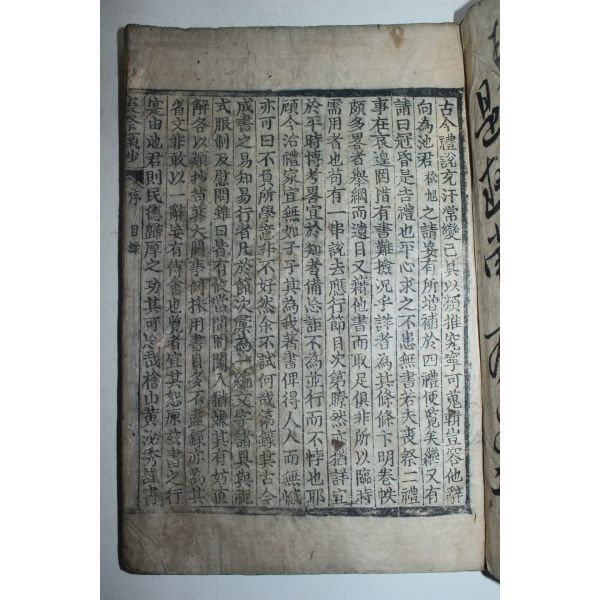 古今禮說充汗常變已其以類推究寧可蒐輯豈容他辭
向為池君松旭之請妄有所增補於四禮便覽矣繼又有
請曰冠昏是吉禮也平心求之不患無書若夫喪祭二禮
事在哀遑罔措有書難檢况乎詳者為其條條卞明卷帙
頗多畧者舉綱而遺目又藉他書而取足俱非所以臨時
需用者也苟有一串說去應行節目次第瞭然亦猶詳宜
於平時博考畧宜於知著備忘詎不為並行而不悖也耶
顧今治禮家宜無如子子其為我著書俾得人人而無憾
亦可曰不負所學意非不好然余不試何哉第籤其古今
成書之易知易行者凡於節次彙為一編文字諸具與祝
式服制及慰問雖曰皆有攸當間闖入猶嫌其有妨直
解各以類抄苟非大關事例採用書目多不盡錄亦為其
省文非敢以一辭妄有也覽者宜其恕原茲書之行
寔由池君則民德歸厚之功其可忘哉檜山黃泌秀謹書
喪祭類抄 序 目錄